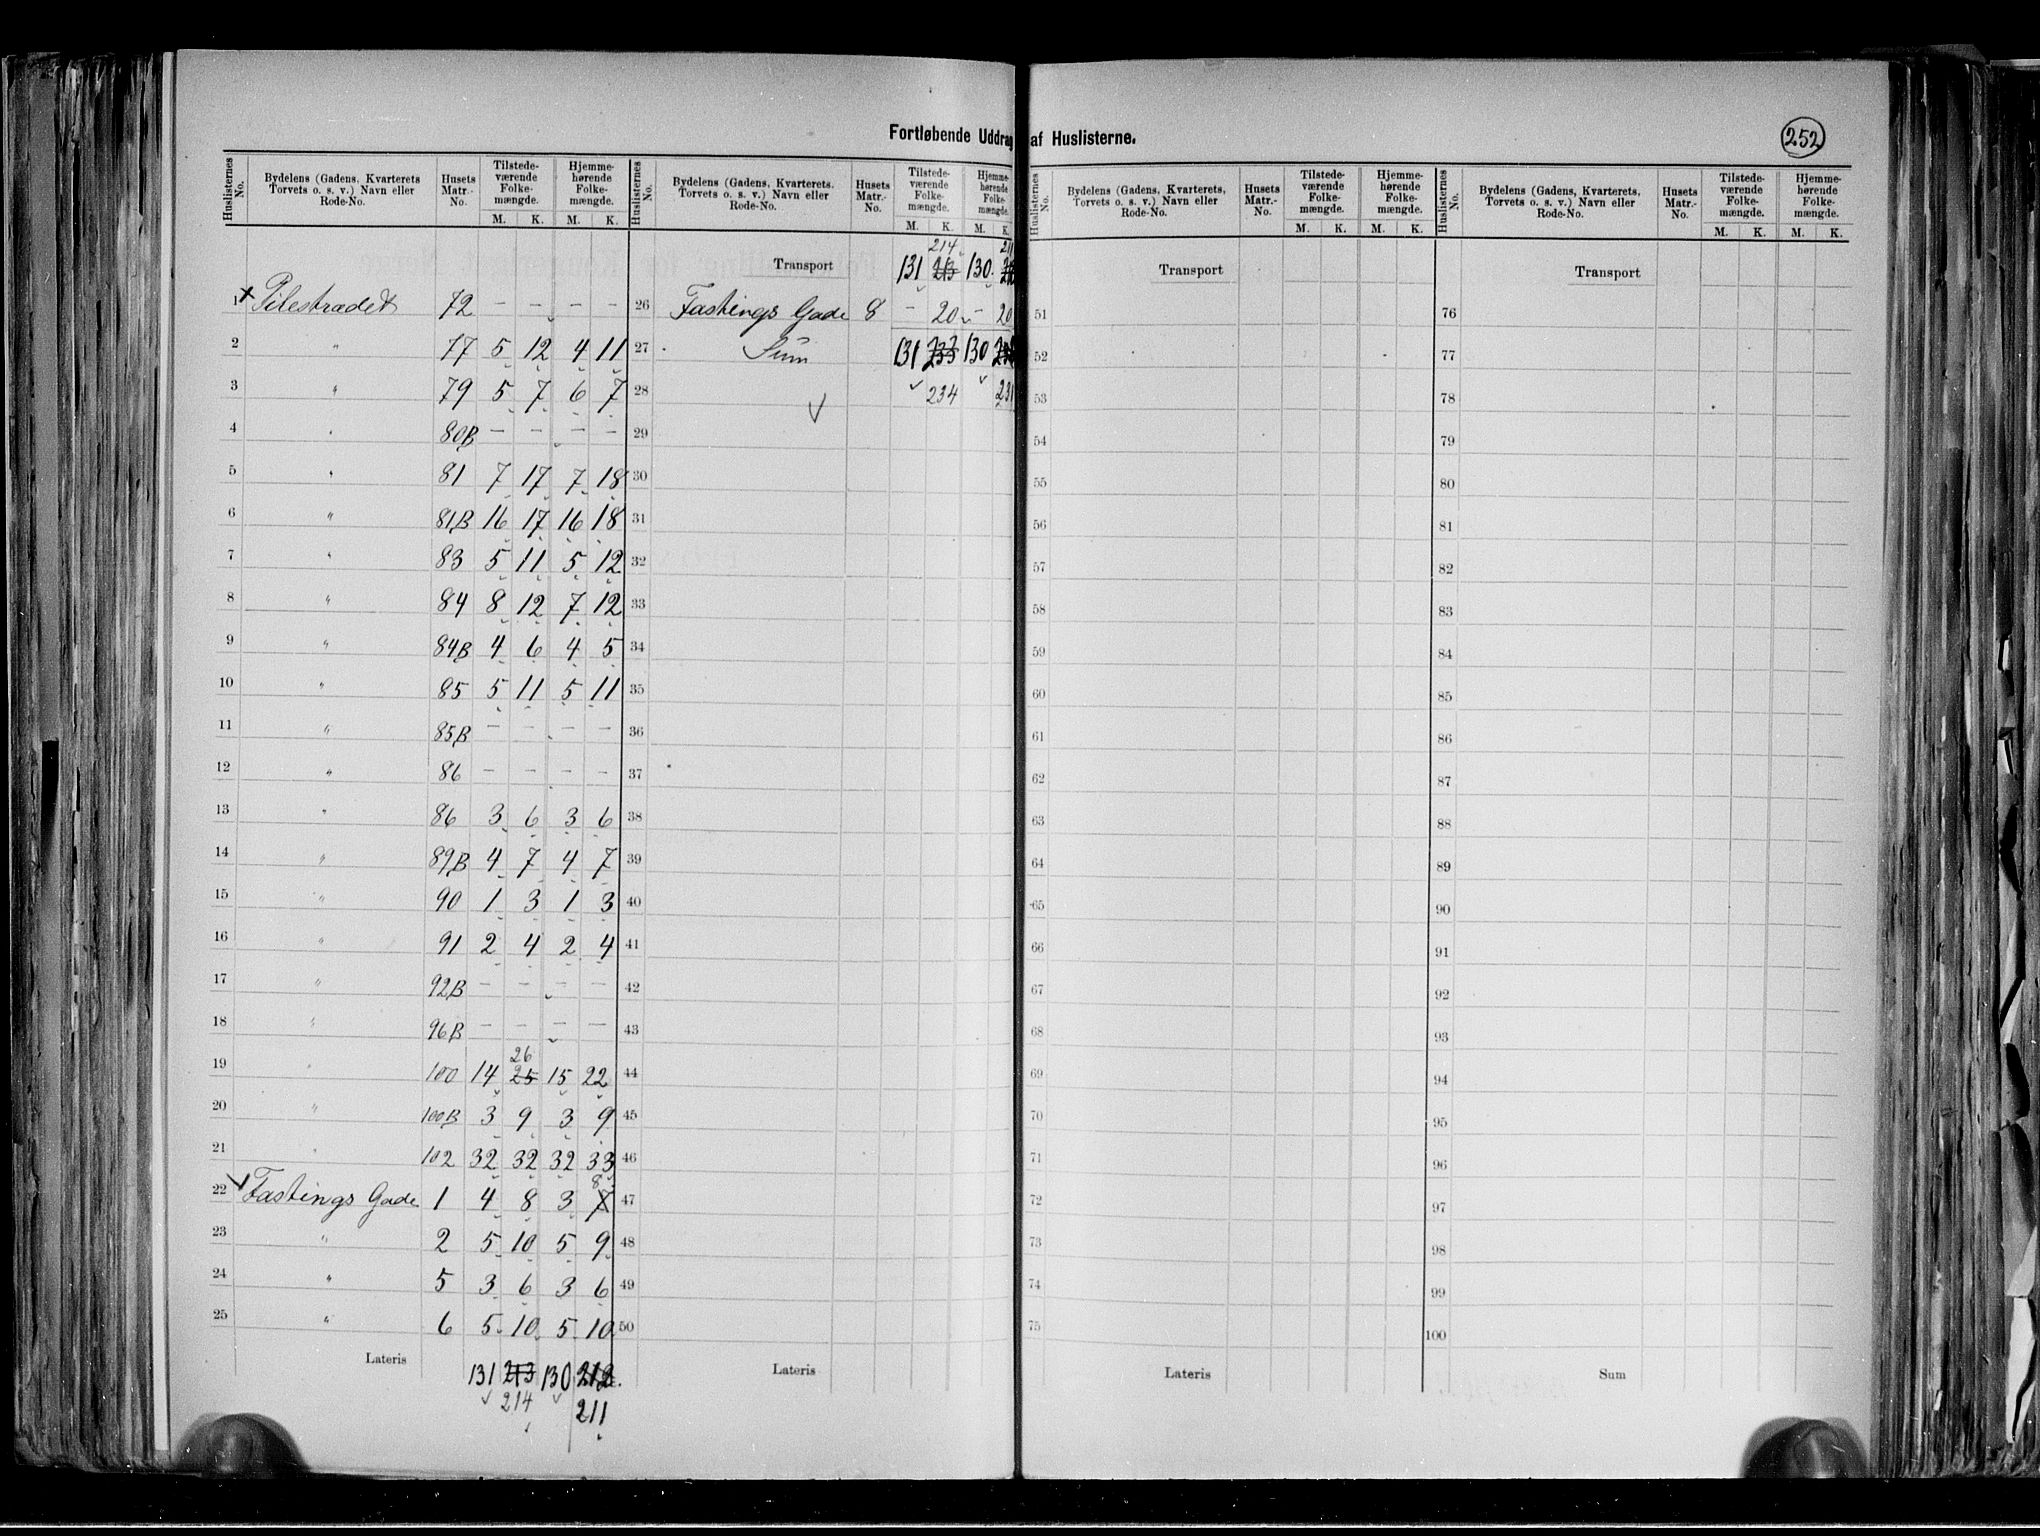 Fortløbende Uddrag af Huslisterne.
252
Huslisternes No. Bydelens (Gadens, Kvarterets Torvets o. s. v.) Navn eller Rode-No. Husets Matr.-No. Tilstede-værende Folke-mængde. M. K. Hjemme-hørende Folke-mængde. M. K.
1 Pilestrædet 72 – – – –
2 " 77 5 12 4 11
3 " 79 5 7 6 7
4 " 80B – – – –
5 " 81 7 17 7 18
6 " 81B 16 17 16 18
7 " 83 5 11 5 12
8 " 84 8 12 7 12
9 " 84B 4 6 4 5
10 " 85 5 11 5 11
11 " 85B – – – –
12 " 86 – – – –
13 " 86 3 6 3 6
14 " 89B 4 7 4 7
15 " 90 1 3 1 3
16 " 91 2 4 2 4
17 " 92B – – – –
18 " 96B – – – –
26
19 " 100 14 25 15 22
20 " 100B 3 9 3 9
21 " 102 32 32 32 33
8
22 Fastings Gade 1 4 8 3 7
23 " 2 5 10 5 9
24 " 5 3 6 3 6
25 " 6 5 10 5 10
Lateris 131 213 130 212
214 211
Huslisternes No. Bydelens (Gadens, Kvarterets. Torvets o. s. v.) Navn eller Rode-No. Husets Matr.-No. Tilstede-værende Folke-mængde. M. K. Hjemme-hørende Folke-mængde. M. K.
214 211
Transport 131 213 130
26 Fastings Gade 8 – 20 – 20
27 Sum 131 233 130
28 234 231
29
30
31
32
33
34
35
36
37
38
39
40
41
42
43
44
45
46
47
48
49
50
Lateris
Huslisternes No. Bydelens (Gadens, Kvarterets, Torvets o. s. v.) Navn eller Rode-No. Husets Matr.-No. Tilstede-værende Folke-mængde. M. K. Hjemme-hørende Folke-mængde. M. K.
Transport
51
52
53
54
55
56
57
58
59
60
61
62
63
64
65
66
67
68
69
70
71
72
73
74
75
Lateris
Huslisternes No. Bydelens (Gadens, Kvarterets, Torvets o. s. v.) Navn eller Rode-No. Husets Matr.-No. Tilstede-værende Folke-mængde. M. K. Hjemme-hørende Folke-mængde. M. K.
Transport
76
77
78
79
80
81
82
83
84
85
86
87
88
89
90
91
92
93
94
95
96
97
98
99
100
Sum